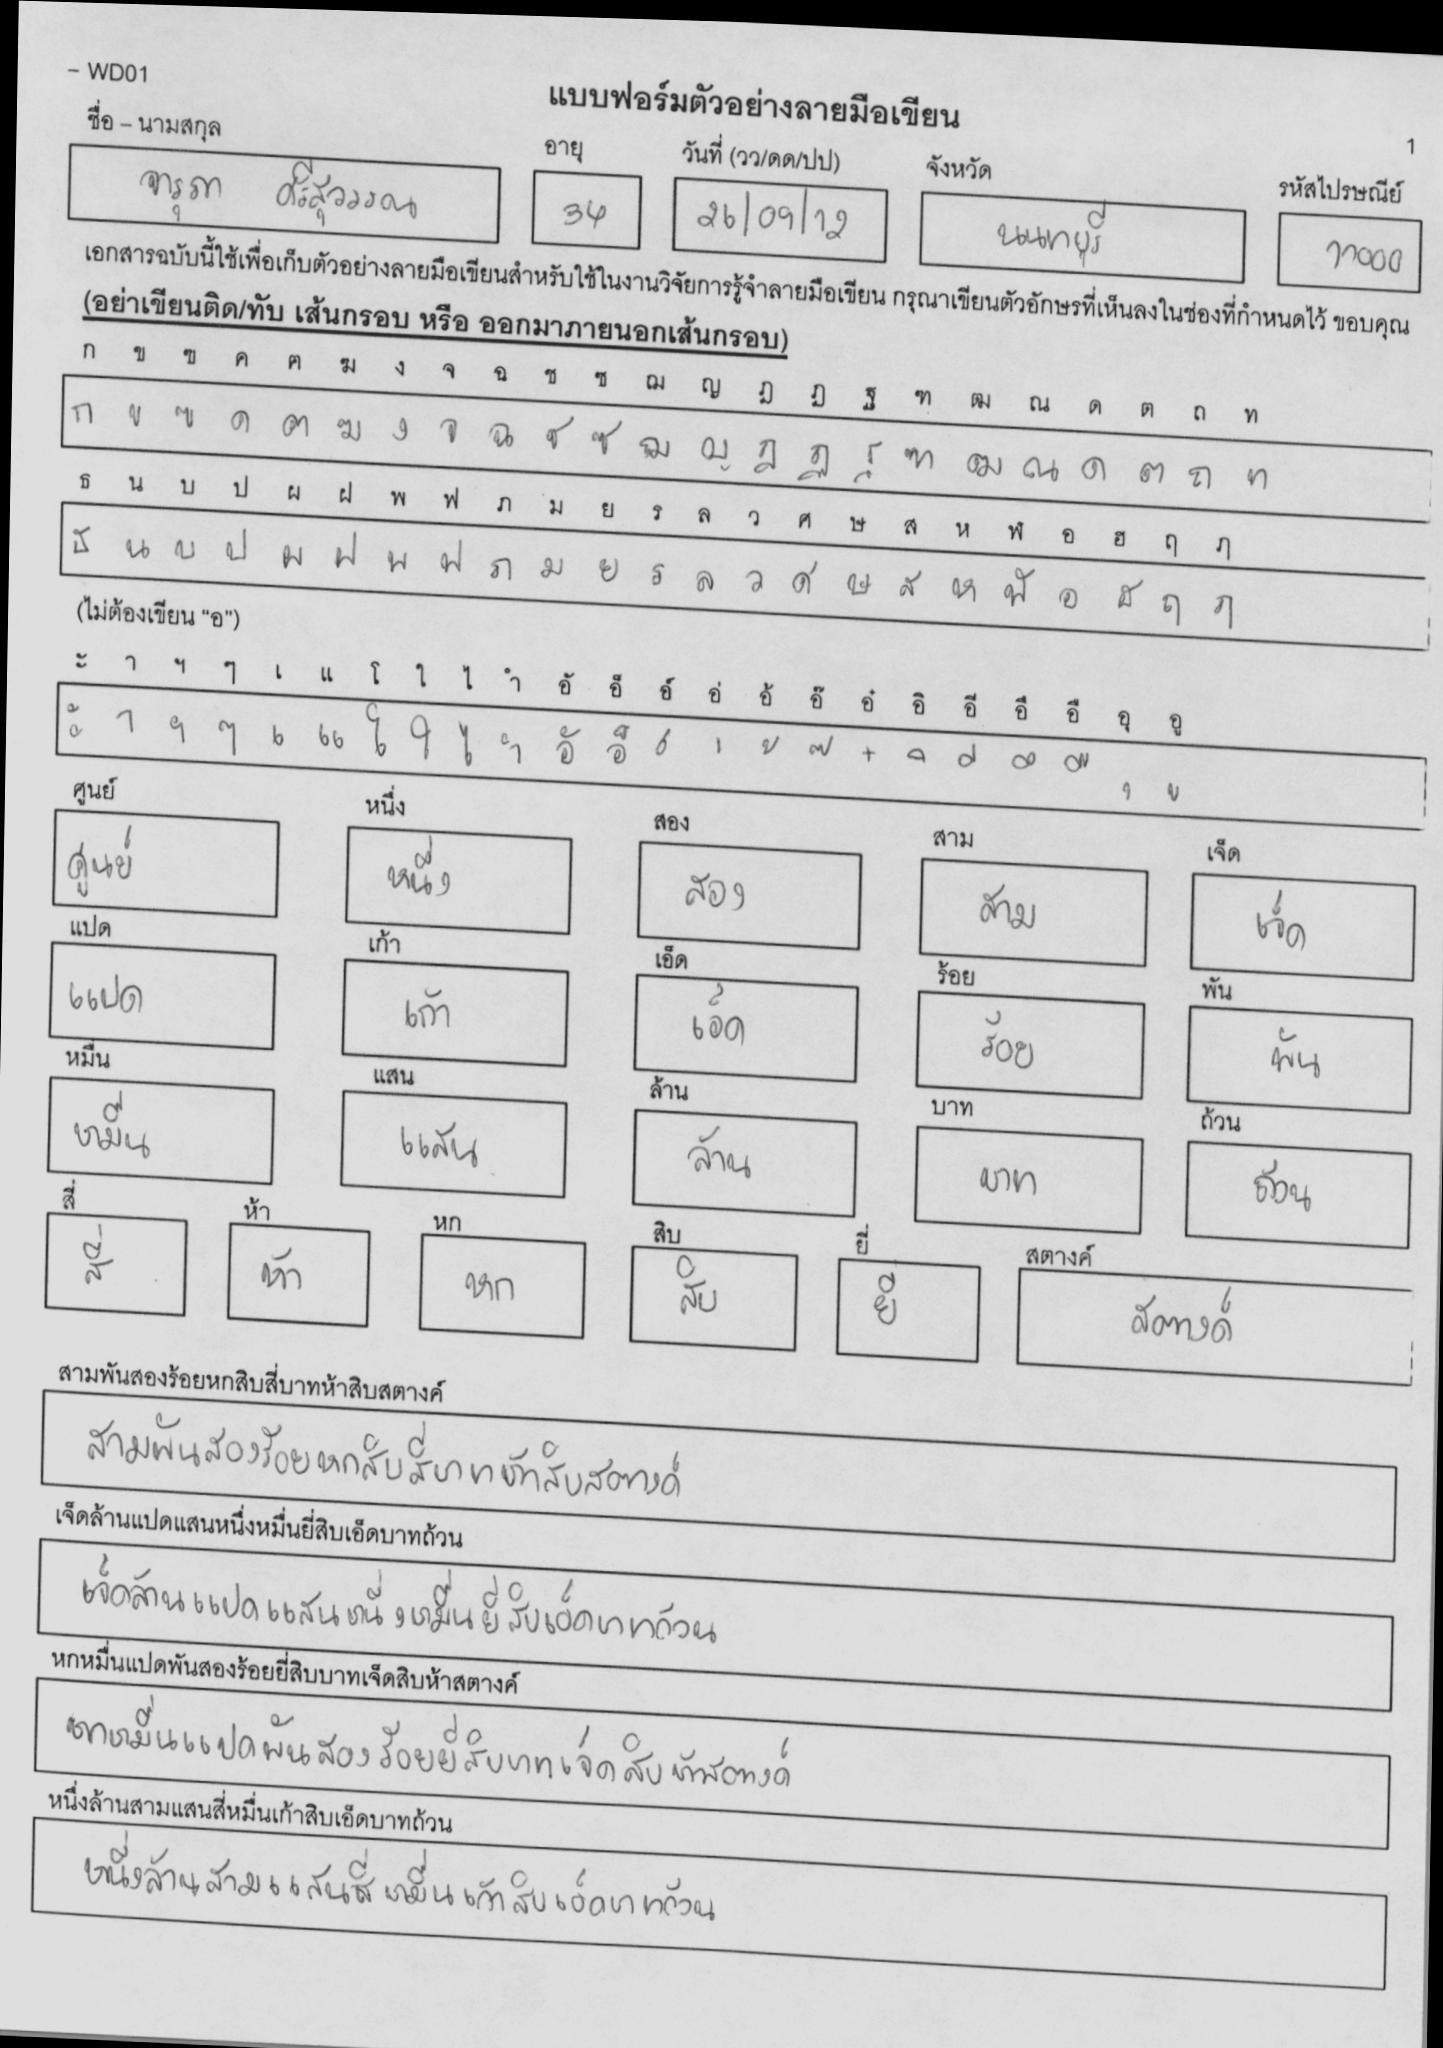 - WD01
แบบฟอร์มตัวอย่างลายมือเขียน
1
ชื่อ – นามสกุล อายุ วันที่ (วว/ดด/ปป) จังหวัด รหัสไปรษณีย์
จารุภา ศรีสุวรรณ 34 26/09/12 นนทบุรี 11000
เอกสารฉบับนี้ใช้เพื่อเก็บตัวอย่างลายมือเขียนสำหรับใช้ในงานวิจัยการรู้จำลายมือเขียน กรุณาเขียนตัวอักษรที่เห็นลงในช่องที่กำหนดไว้ ขอบคุณ
(อย่าเขียนติด/ทับ เส้นกรอบ หรือ ออกมาภายนอกเส้นกรอบ)
ก ข ฃ ค ฅ ฆ ง จ ฉ ช ซ ฌ ญ ฎ ฏ ฐ ฑ ฒ ณ ด ต ถ ท
ก ข ฃ ค ฅ ฆ ง จ ฉ ช ซ ฌ ญ ฎ ฏ ฐ ฑ ฒ ณ ด ต ถ ท
ธ น บ ป ผ ฝ พ ฟ ภ ม ย ร ล ว ศ ษ ส ห ฬ อ ฮ ฤ ภ
ธ น บ ป ผ ฝ พ ฟ ภ ม ย ร ล ว ศ ษ ส ห ฬ อ ฮ ฤ ภ
(ไม่ต้องเขียน "อ")
ะ า ฯ ๆ เ แ โ ใ ไ ำ อั อ็ อ์ อ่ อ้ อ๊ อ๋ อิ อี อึ อื อุ อู
ะ า ฯ ๆ เ แ โ ใ ไ ำ อั อ็ ์ ่ ้ ๊ ๋ ิ ี ึ ื ุ ู
ศูนย์ หนึ่ง สอง สาม เจ็ด
ศูนย์ หนึ่ง สอง สาม เจ็ด
แปด เก้า เอ็ด ร้อย พัน
แปด เก้า เอ็ด ร้อย พัน
หมื่น แสน ล้าน บาท ถ้วน
หมื่น แสน ล้าน บาท ถ้วน
สี่ ห้า หก สิบ ยี่ สตางค์
สี่ ห้า หก สิบ ยี่ สตางค์
สามพันสองร้อยหกสิบสี่บาทห้าสิบสตางค์
สามพันสองร้อยหกสิบสี่บาทห้าสิบสตางค์
เจ็ดล้านแปดแสนหนึ่งหมื่นยี่สิบเอ็ดบาทถ้วน
เจ็ดล้านแปดแสนหนึ่งหมื่นยี่สิบเอ็ดบาทถ้วน
หกหมื่นแปดพันสองร้อยยี่สิบบาทเจ็ดสิบห้าสตางค์
หกหมื่นแปดพันสองร้อยยี่สิบบาทเจ็ดสิบห้าสตางค์
หนึ่งล้านสามแสนสี่หมื่นเก้าสิบเอ็ดบาทถ้วน
หนึ่งล้านสามแสนสี่หมื่นเก้าสิบเอ็ดบาทถ้วน